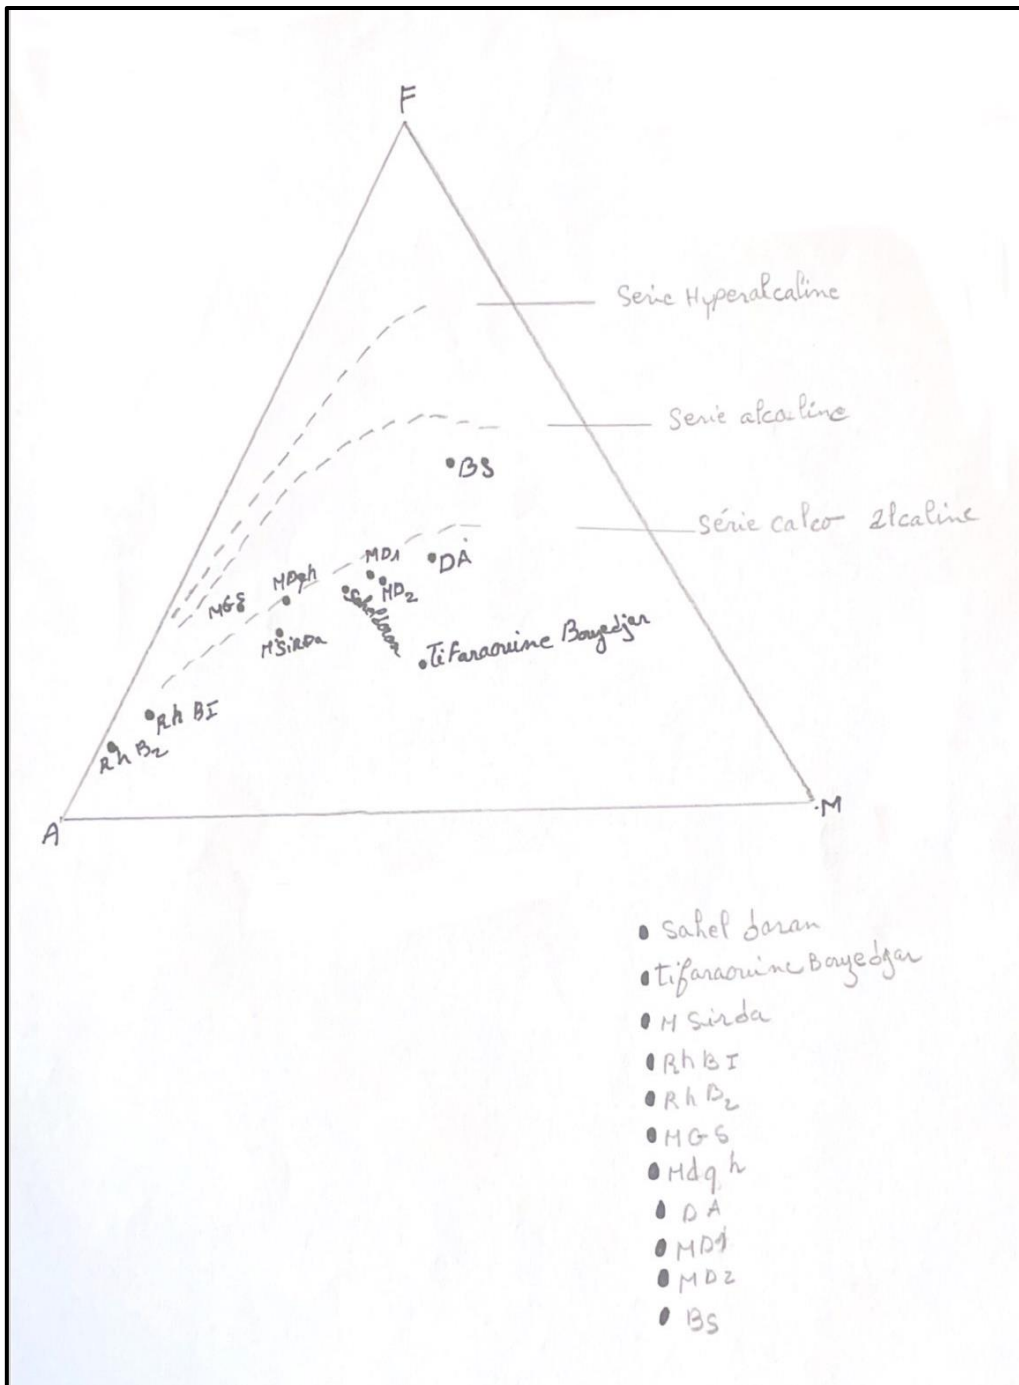 F
Serie Hyperalcaline
Serie alcaline
BS
Série calco-alcaline
MD1
DA
MDqh
MD2
MGS
Sahel doran
M'SiRDa
Tifaraouine Bouyedjar
Rh BI
Rh B2
A
M
Sahel doran
tifaraouine Bouyedjar
M Sirda
Rh BI
Rh B2
MGS
Mdqh
DA
MD1
MD2
BS